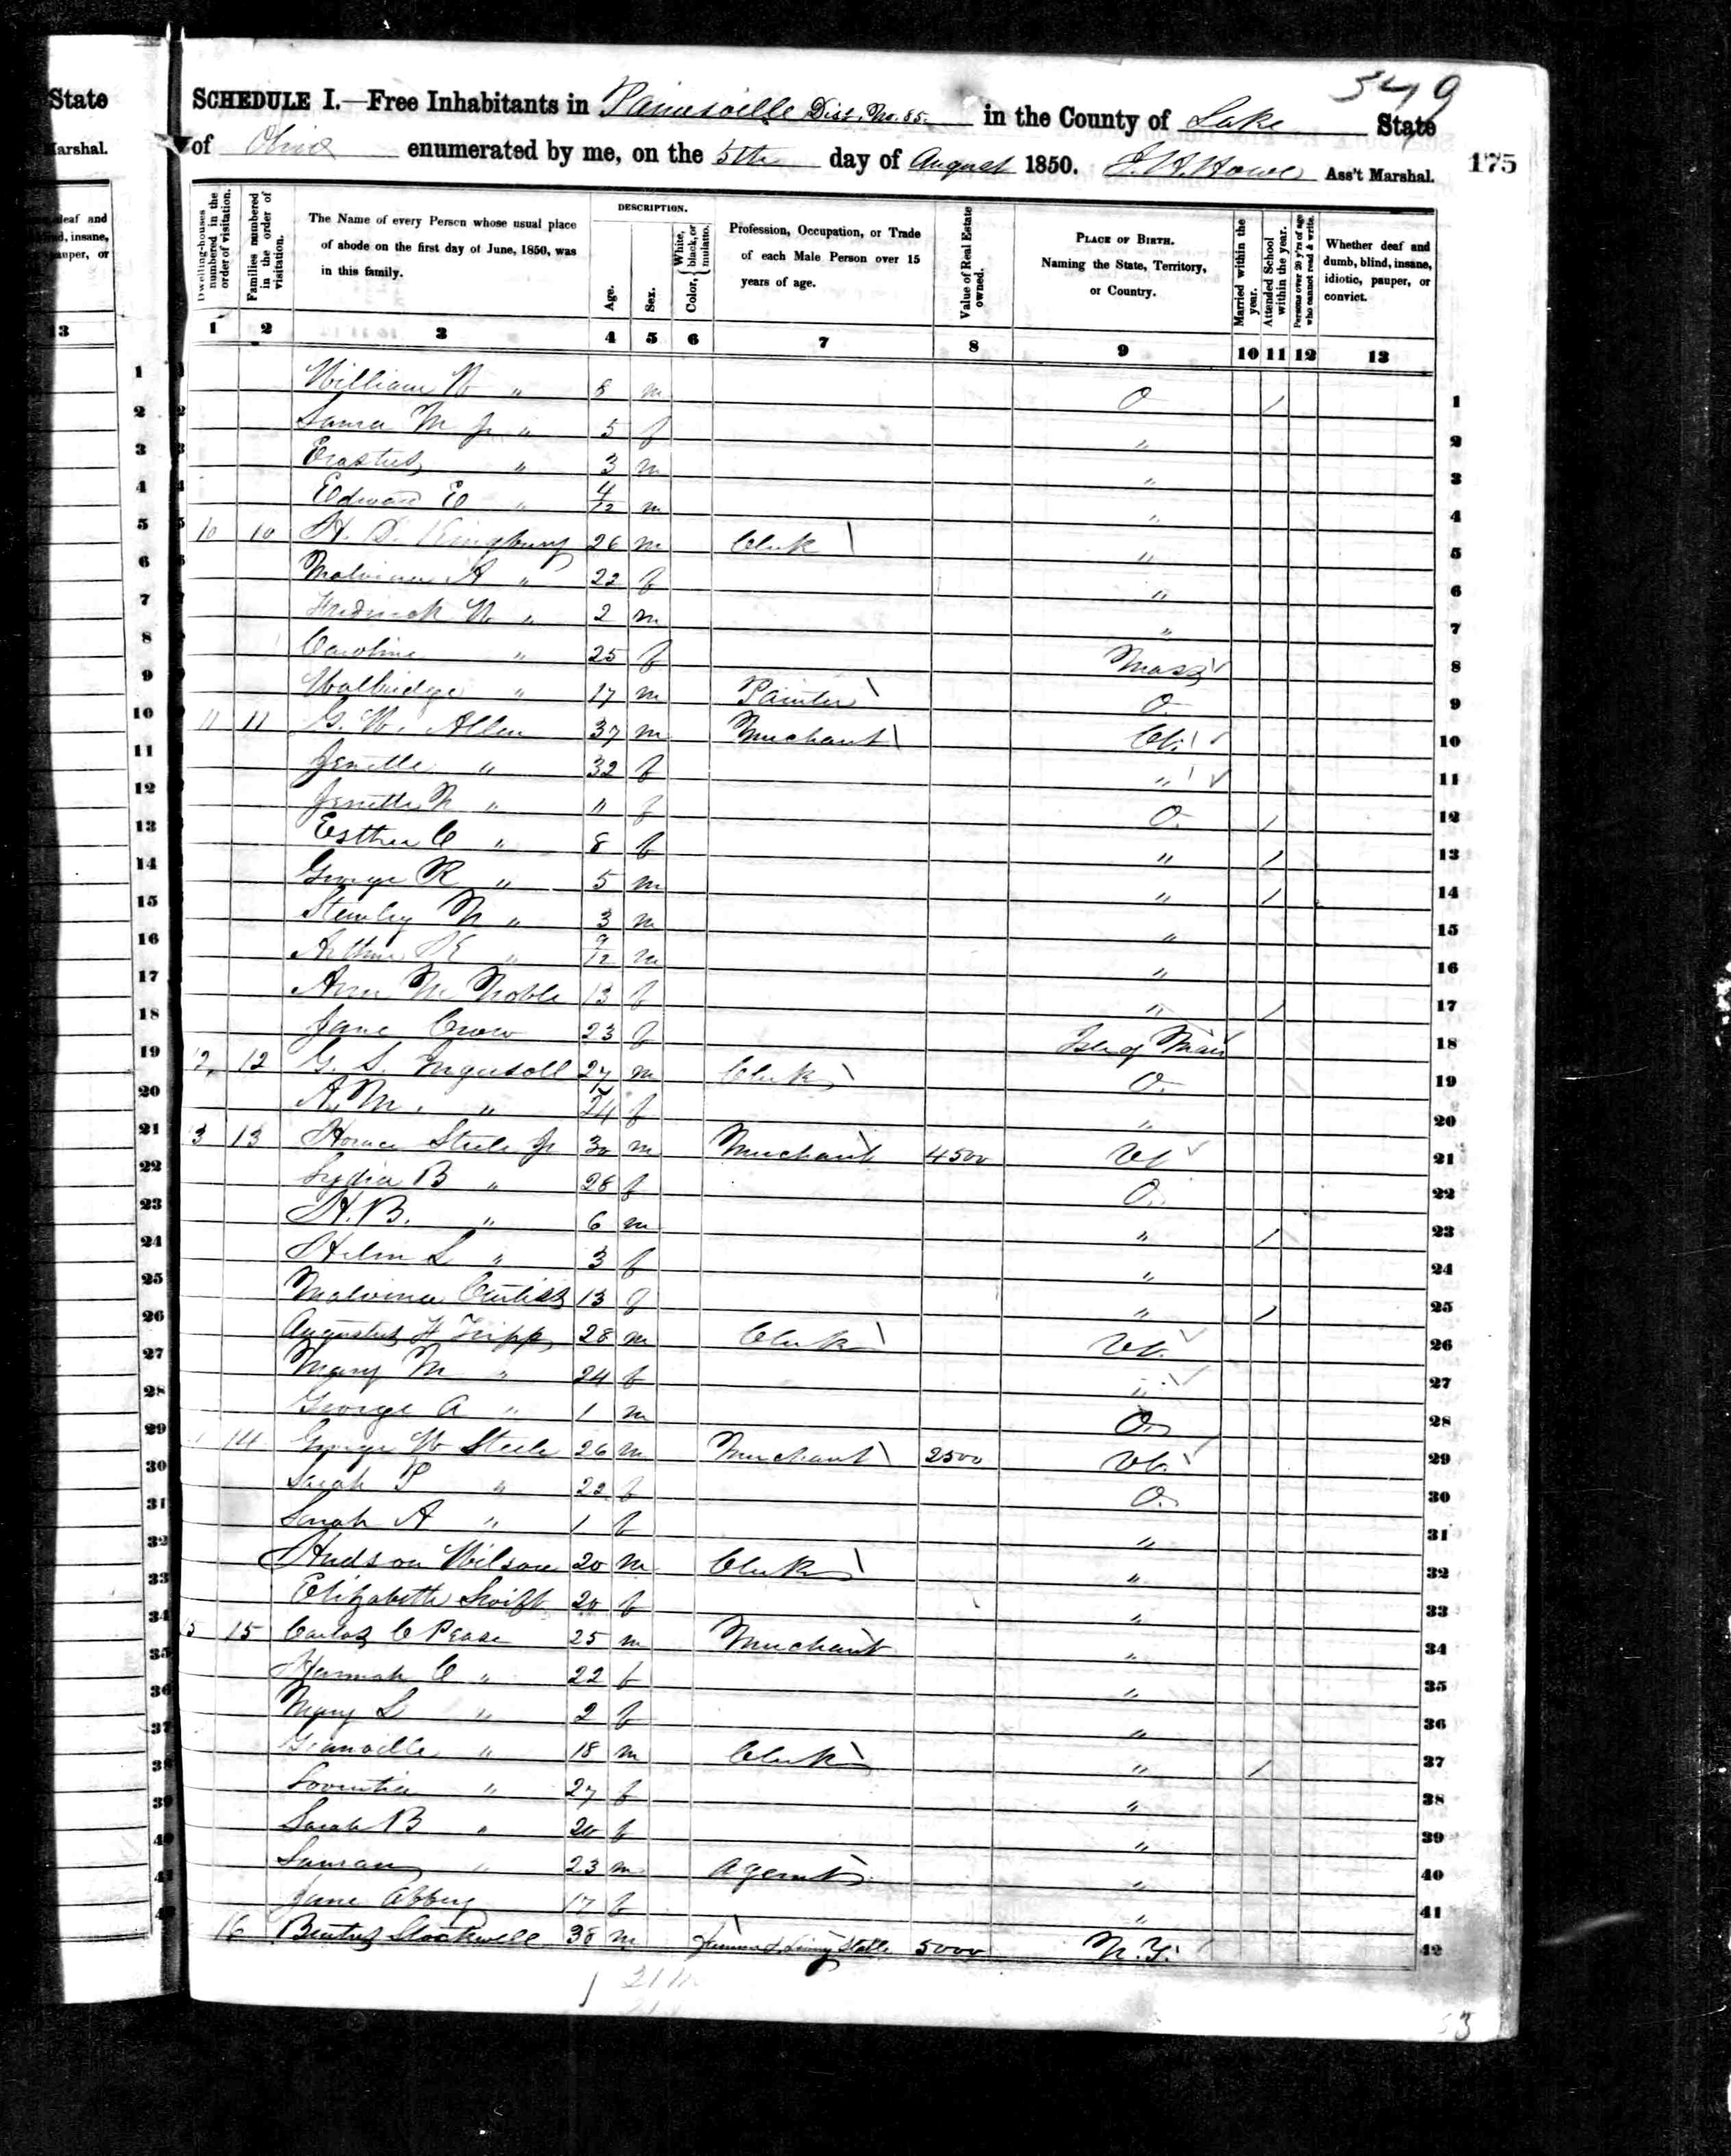 State
Marshal.
deaf and
blind, insane,
pauper, or
13
349
SCHEDULE I.—Free Inhabitants in Painesville Dist. No. 85. in the County of Lake State
of Ohio enumerated by me, on the 5th day of August 1850. J. H. Howe Ass't Marshal. 175
Dwelling-houses numbered in the order of visitation.
Families numbered in the order of visitation.
The Name of every Person whose usual place of abode on the first day of June, 1850, was in this family.
DESCRIPTION.
Age.
Sex.
Color, { White, black, or mulatto.
Profession, Occupation, or Trade of each Male Person over 15 years of age.
Value of Real Estate owned.
PLACE OF BIRTH. Naming the State, Territory, or Country.
Married within the year.
Attended School within the year.
Persons over 20 y'rs of age who cannot read & write.
Whether deaf and dumb, blind, insane, idiotic, pauper, or convict.
1 2 3 4 5 6 7 8 9 10 11 12 13
1 William W " 8 m O / 1
2 Laura M Jr " 5 f " 2
3 Erastus " 3 m " 3
4 Edward E " 4/12 m " 4
5 10 10 H. D. Kingsbury 26 m Clerk " 5
6 Malvina A " 22 f " 6
7 Frederick W " 2 m " 7
8 Caroline " 25 f Mass 8
9 Walbridge " 17 m Painter O. 9
10 11 11 G. W. Allen 37 m Merchant Ct. 10
11 Jenette " 32 f " 11
12 Jenette N " 11 f O. / 12
13 Esther C " 8 f " / 13
14 George R " 5 m " / 14
15 Stanley N " 3 m " 15
16 Arthur E " 9/12 m " 16
17 Ann M Noble 13 f " / 17
18 Jane Crow 23 f Isle of Man 18
19 12 12 G. S. Ingersoll 27 m Clerk O. 19
20 A. M. " 24 f " 20
21 3 13 Horace Steele Jr 30 m Merchant 4500 Vt. 21
22 Lydia B " 28 f O. 22
23 H. B. " 6 m " / 23
24 Helen L " 3 f " 24
25 Malvina Curtiss 13 f " / 25
26 Augustus H Tripp 28 m Clerk Vt. 26
27 Mary M " 24 f " 27
28 George A " 1 m O. 28
29 14 George W Steele 26 m Merchant 2500 Vt. 29
30 Sarah S " 22 f O. 30
31 Sarah A " 1 f " 31
32 Hudson Wilson 20 m Clerk " 32
33 Elizabeth Swift 20 f " 33
34 5 15 Carlos C Pease 25 m Merchant " 34
35 Hannah C " 22 f " 35
36 Mary L " 2 f " 36
37 Granville " 18 m Clerk " / 37
38 " 27 f " 38
39 Sarah B " 20 f " 39
40 Laman " 23 m Agent " 40
41 Jane Abbey 17 f " 41
16 Stockwell 38 m Farmer & Livery Stable 5000 N.Y. 42